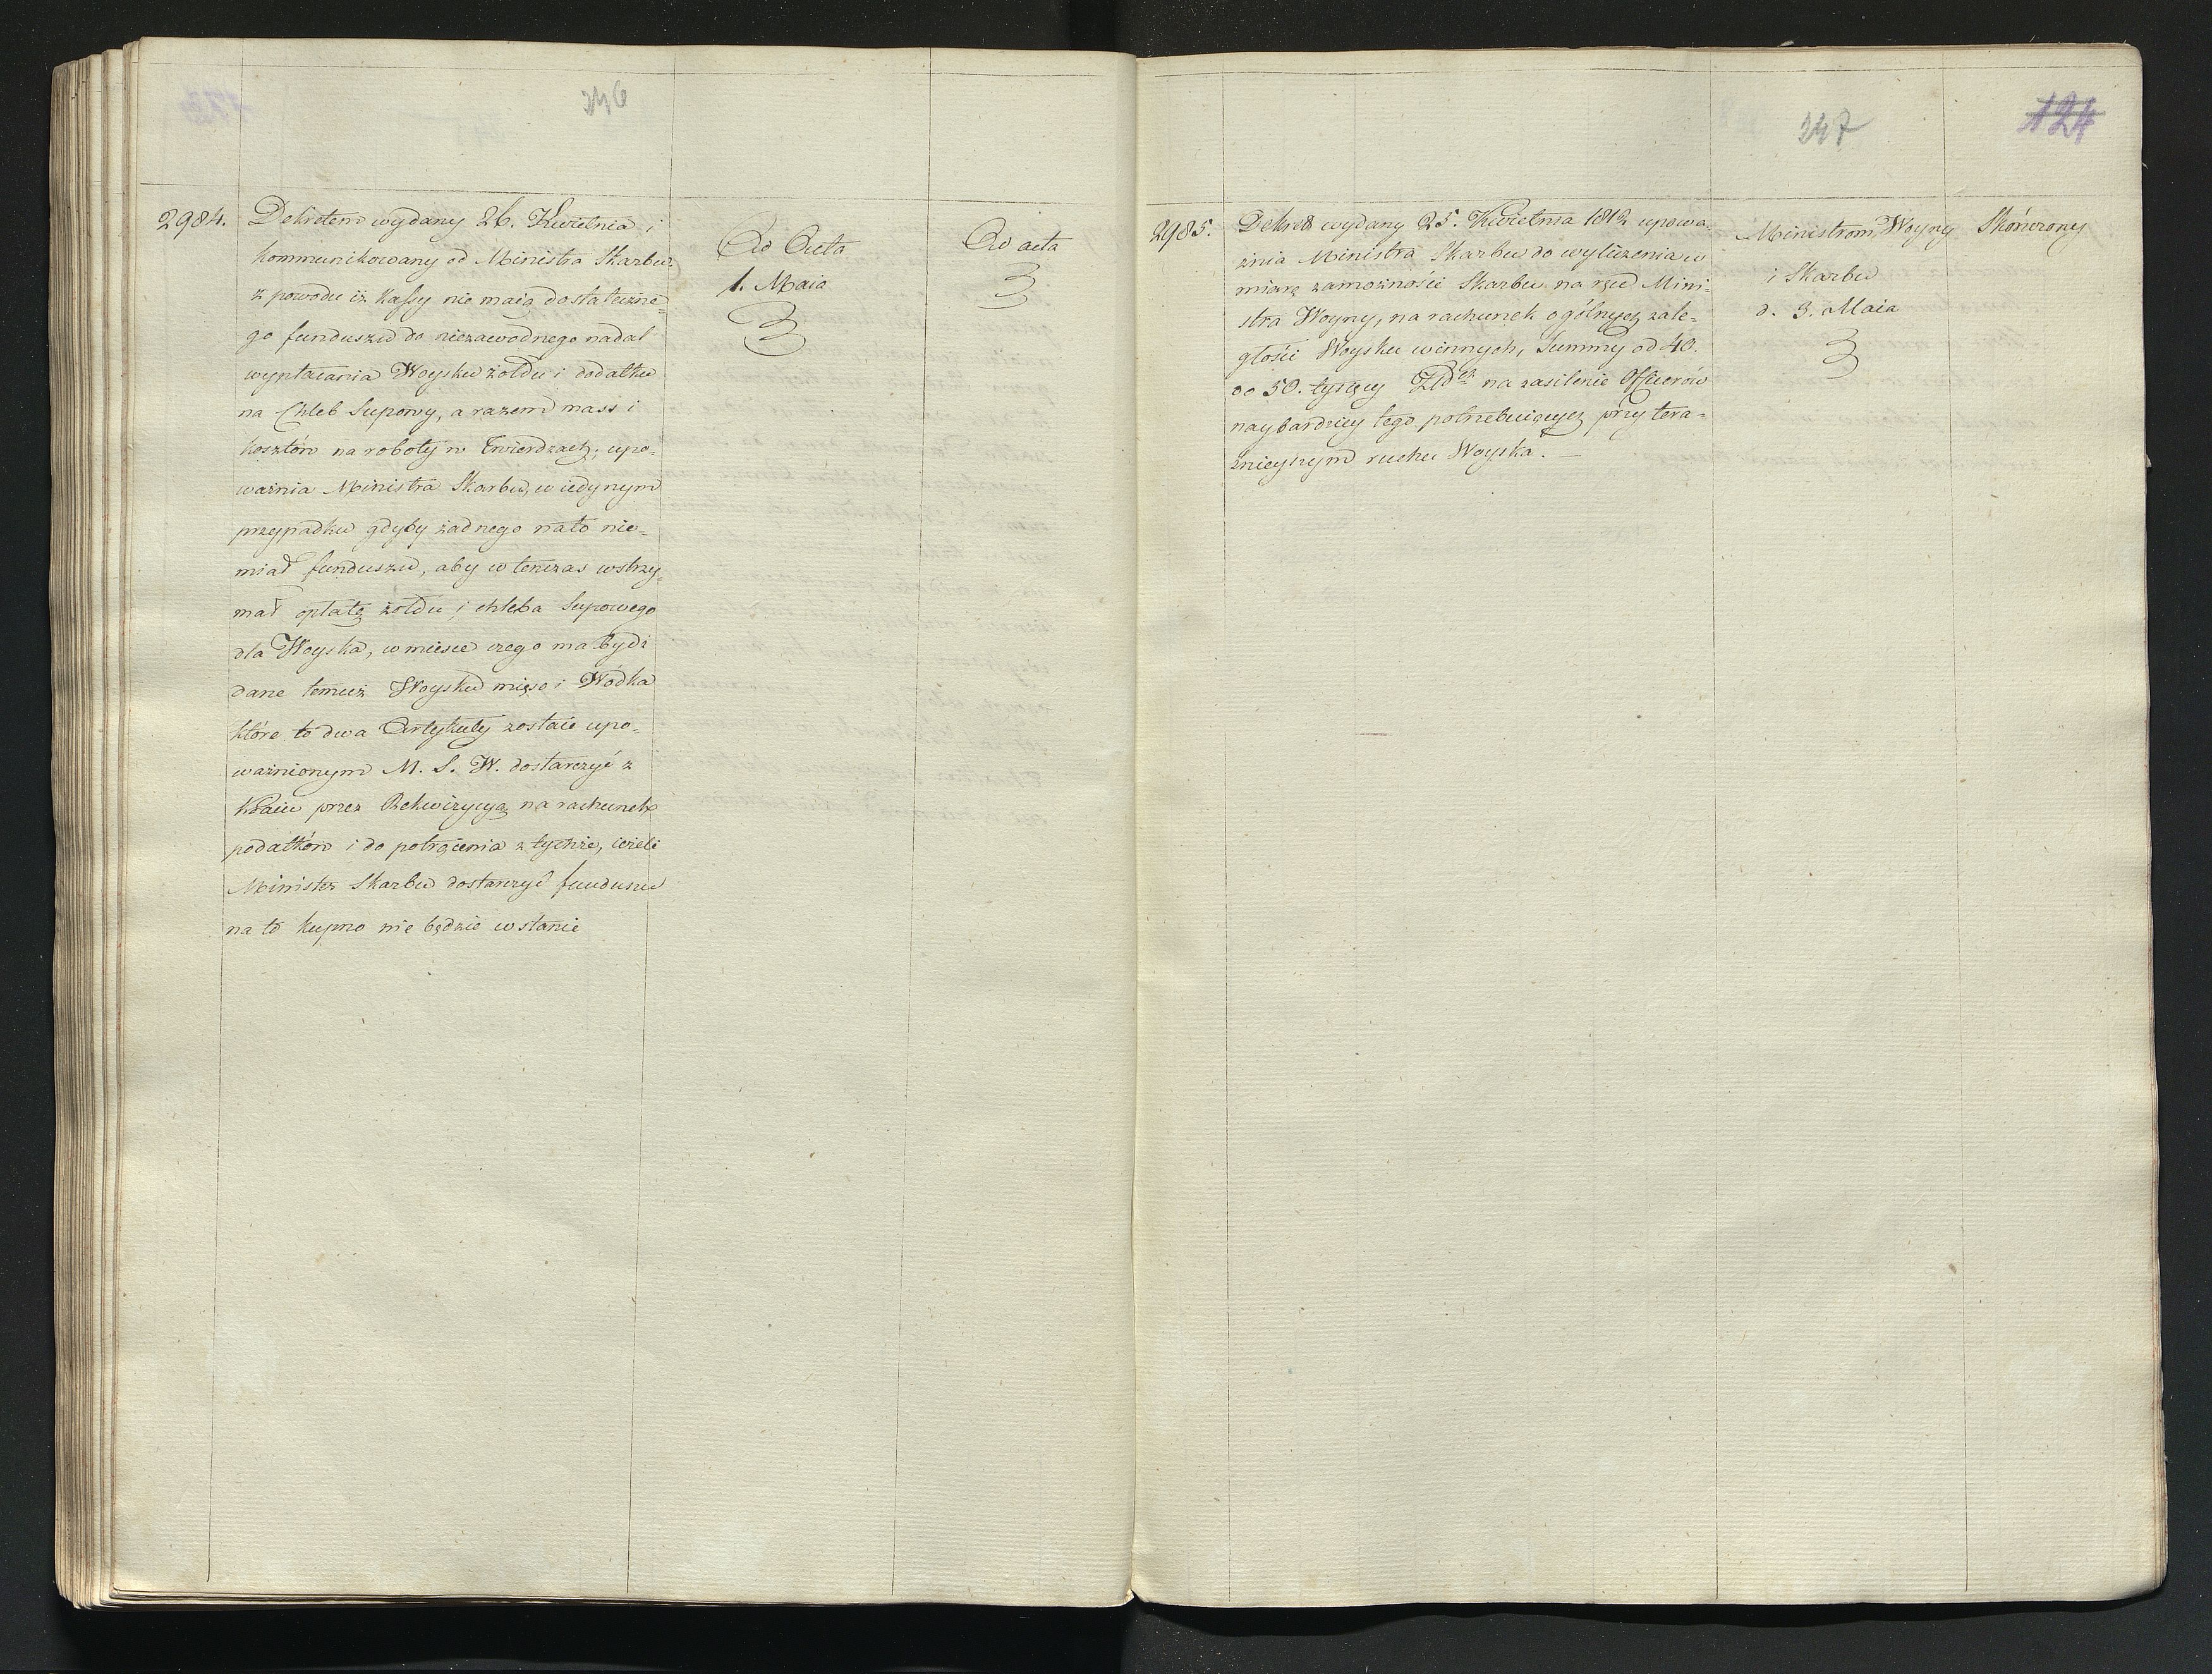 246
2984. Dekretem wydany 26. Kwietnia i
kommunikowany od Ministra Skarbu
z powodu iż Kassy nie maią dostateczne=
go funduszu do niezawodnego nadal
wypłacania Woysku żołdu i dodatku
na Chleb Supowy, a razem mass i
kosztów na roboty w Twierdzach, upo=
ważnia Ministra Skarbu, w iedynym
przypadku gdyby żadnego na to nie=
miał funduszu, aby w tenczas wstrzy=
mał opłatę żołdu i chleba Supowego
dla Woyska, w mieysce czego ma bydź
dane temuż Woysku mięso i Wódka
które to dwa Artykuły zostaie upo=
ważnionym M. S. W. dostarczyć z
Kraiu przez Rekwizycyą na rachunek
podatków i do potrącenia z tychże, ieżeli
Minister Skarbu dostarczyć funduszu
na to kupno nie będzie wstanie
Ad Acta
1. Maia
Ad acta
247
124
2985. Dekret wydany 25. Kwietnia 1812 upowa=
żnia Ministra Skarbu do wyliczenia w
miarę zamożności Skarbu na ręce Mini=
stra Woyny, na rachunek ogólnych zale=
głości Woysku winnych, Summy od 40.
do 50. tysięcy Złych na zasilenie Officerów
naybardziey tego potrzebuiących przy tera=
źnieyszym ruchu Woyska. —
Ministrom Woyny
i Skarbu
d. 3. Maia
Skończony